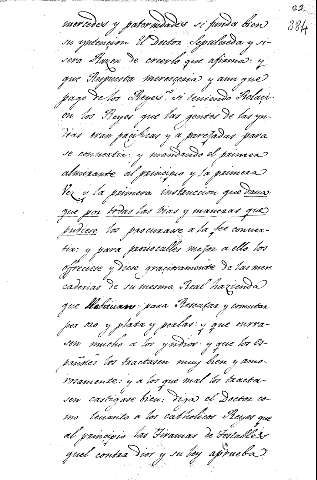 22.
384
mercedes y paternidades si funda bien
su yntencion el Doctor Sepulveda y si
sera Razon de creerlo que afirma: y
que Respuesta mereceria y aun que
pago de los Reyes. Si teniendo Relaci-
on los Reyes que las gentes de las yn-
dias eran pacificas y aparejadas para
se convertir: y mandando el primera
almirante al principio y la primera
vez y la primera instruccion que dava
que por todas las vias y maneras que
pudiere los procurase a la fee conver-
tir: y para provocalles mejor a ello les
ofreciese y diese graciosamente de las mer-
caderias de su mesma Real hazienda
que llebavan para Rescatar y comutar
por oro y plata y perlas: y que onrra-
sen mucho a los yndios: y que los es-
pañoles los tractasen muy bien y amo-
rosamente: y a los que mal los tracta-
sen castigase bien: dira el Doctor co-
mo levanto a los catholicos Reyes que
al principio las tiranias de
quel contra dios y su ley aprueba